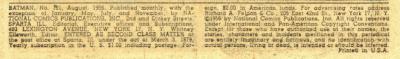 BATMAN, No. 101, August, 1956. Published monthly, with the
exception of January, May, July and November, by NA-
TIONAL COMICS PUBLICATIONS, INC., 2nd and Dickey Streets,
SPARTA, ILL. Editorial, Executive offices and Subscriptions,
480 LEXINGTON AVENUE, NEW YORK 17, N. Y. Whitney
Ellsworth, Editor. ENTERED AS SECOND CLASS MATTER at
the post office at Sparta, Ill. under the act of March 3, 1879.
Yearly subscription in the U. S. $1.00 including postage. For-
eign, $2.00 in American funds. For advertising rates address
Richard A. Feldon & Co., 205 East 42nd St., New York 17, N. Y.
©1956 by National Comics Publications, Inc. All rights reserved
under International and Pan-American Copyright Conventions.
Except for those who have authorized use of their names, the
stories, characters and incidents mentioned in this periodical
are entirely imaginary and fictitious, and no identification with
actual persons, living or dead, is intended or should be inferred.
Printed in U.S.A.